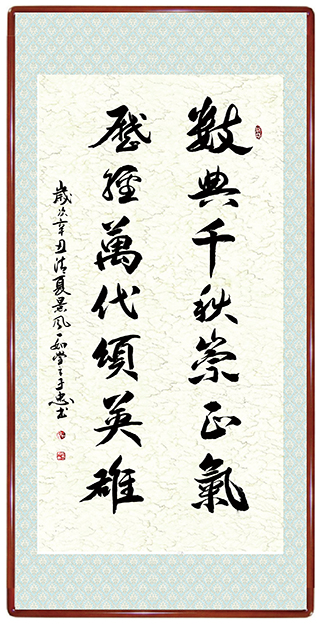 數典千秋崇正氣
歷經萬代頌英雄
歲次辛丑清夏景風一如堂主于忠書